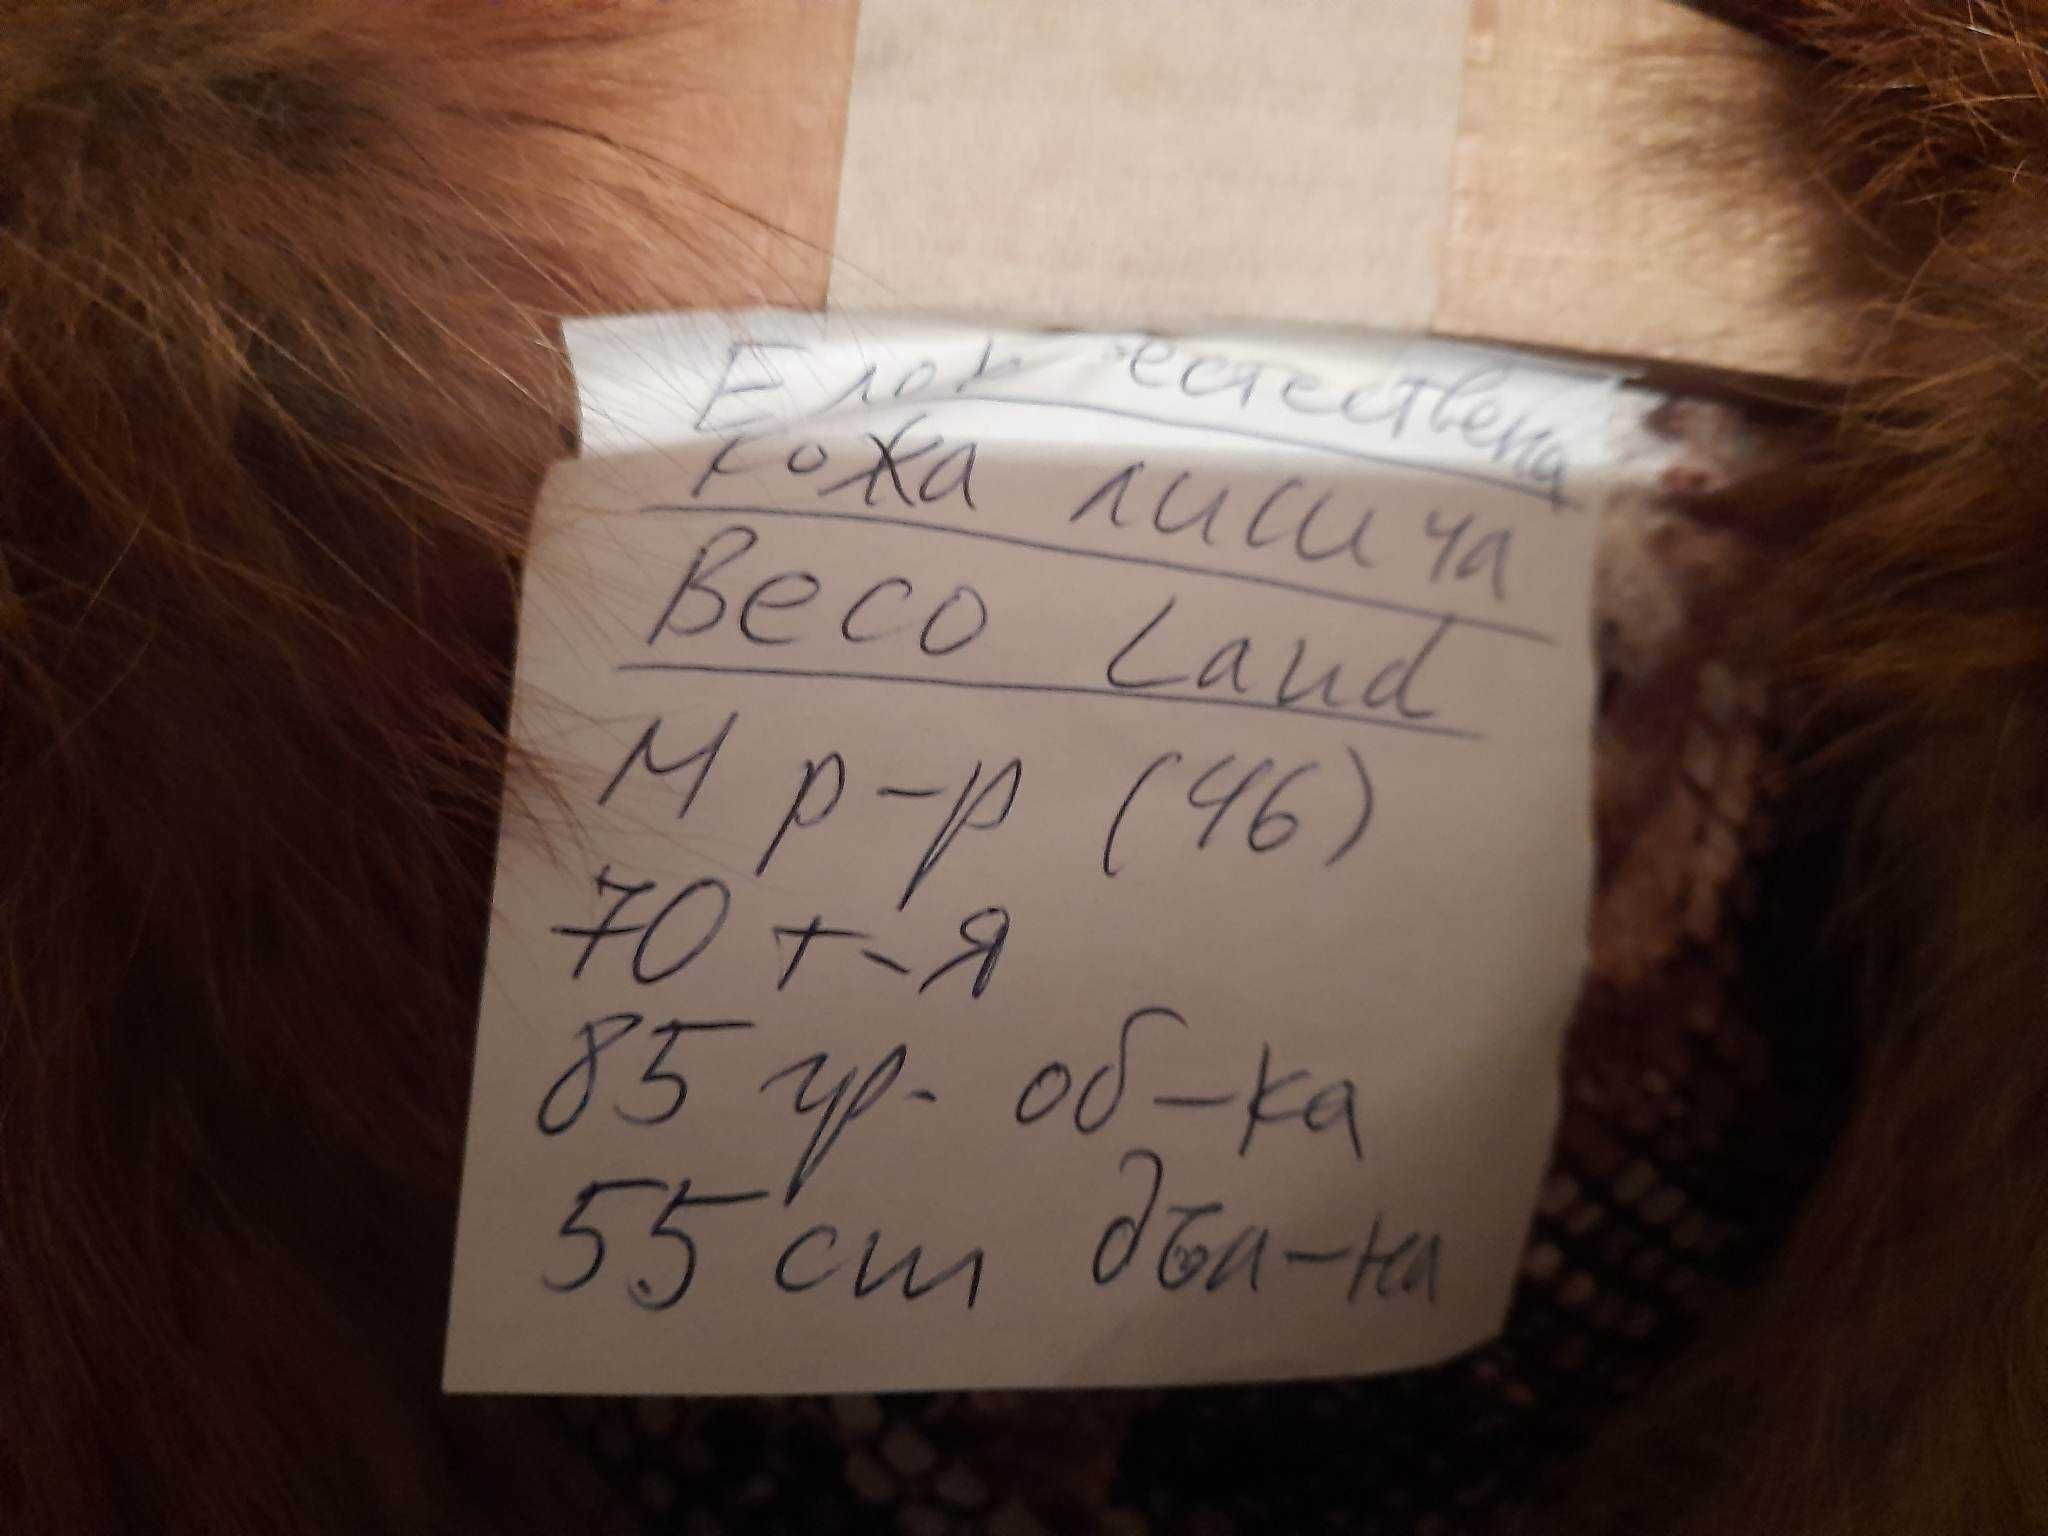 Елек естествена
кожа лисича
Beco Land
М р-р (46)
70 т-я
85 гр. об-ка
55 cm дъл-на